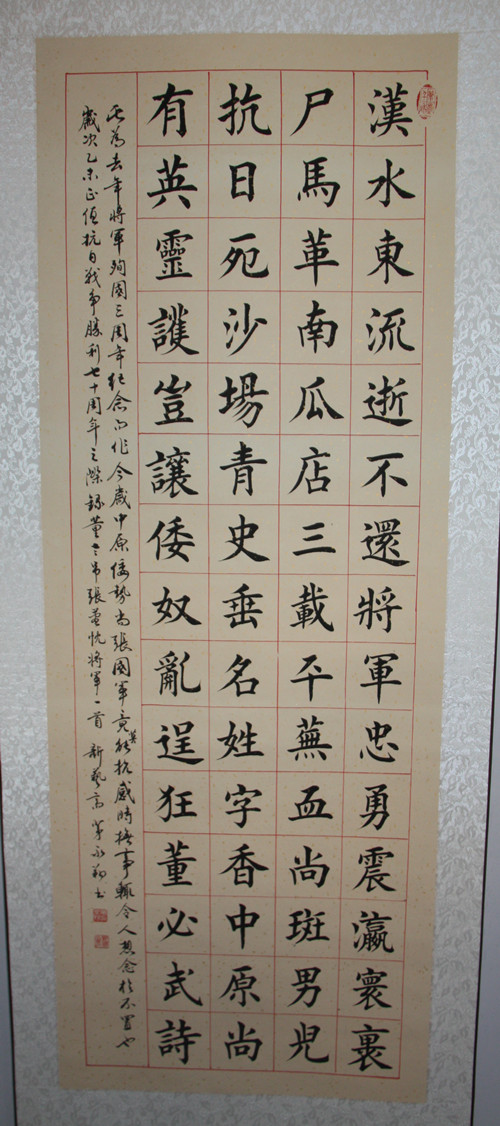 漢水東流逝不還將軍忠勇震瀛寰裹
尸馬革南瓜店三載平蕪血尚斑男児
抗日死沙場青史垂名姓字香中原尚
有英靈護豈讓倭奴亂逞狂董必武詩
此為去年將軍殉國三周年紀念而作今歲中原倭勢尚張國軍竟莫能抗感時撫事輒令人想念於不置也
歲次乙未正值抗日戰爭勝利七十周年之際錄董老弔張蓋忱將軍一首 新藝高 書